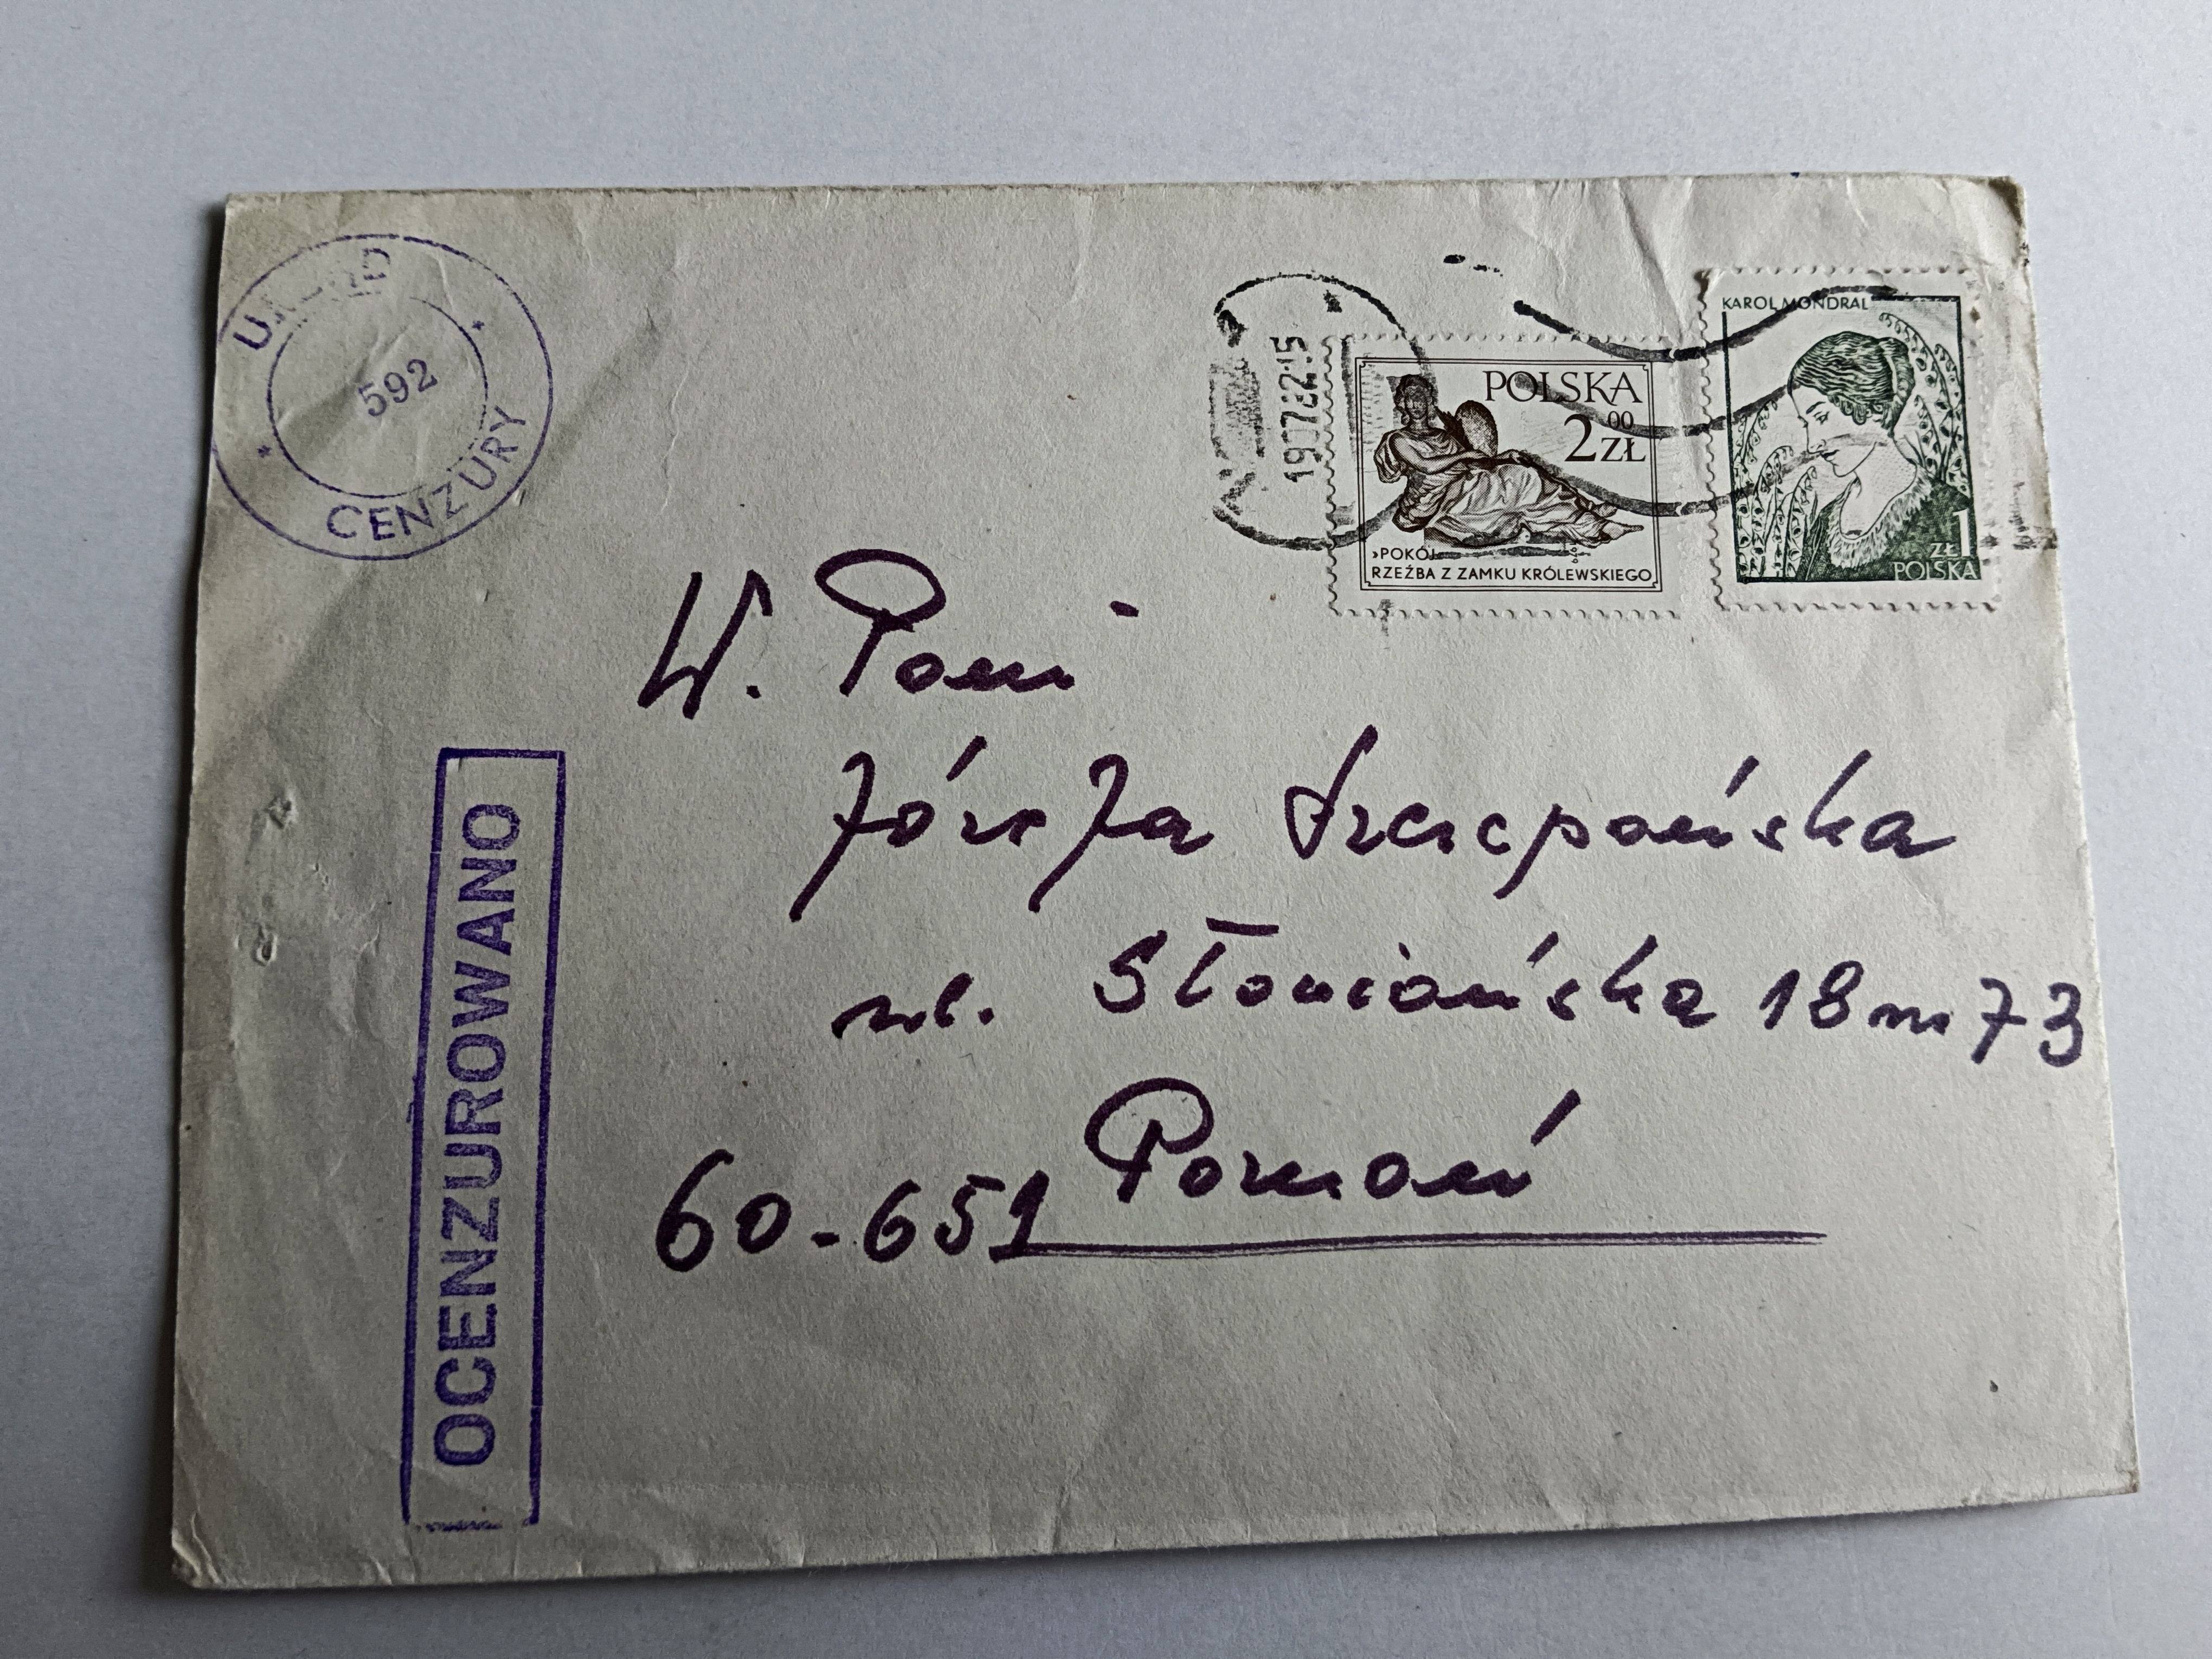 CENZURY
592
OCENZUROWANO
POLSKA
2 00 ZŁ
›POKÓJ
RZEŹBA Z ZAMKU KRÓLEWSKIEGO
KAROL MONDRAL
ZŁ1
POLSKA
W. Pani
Józefa Szczepańska
ul. Słowiańska 18 m 73
60-651 Poznań